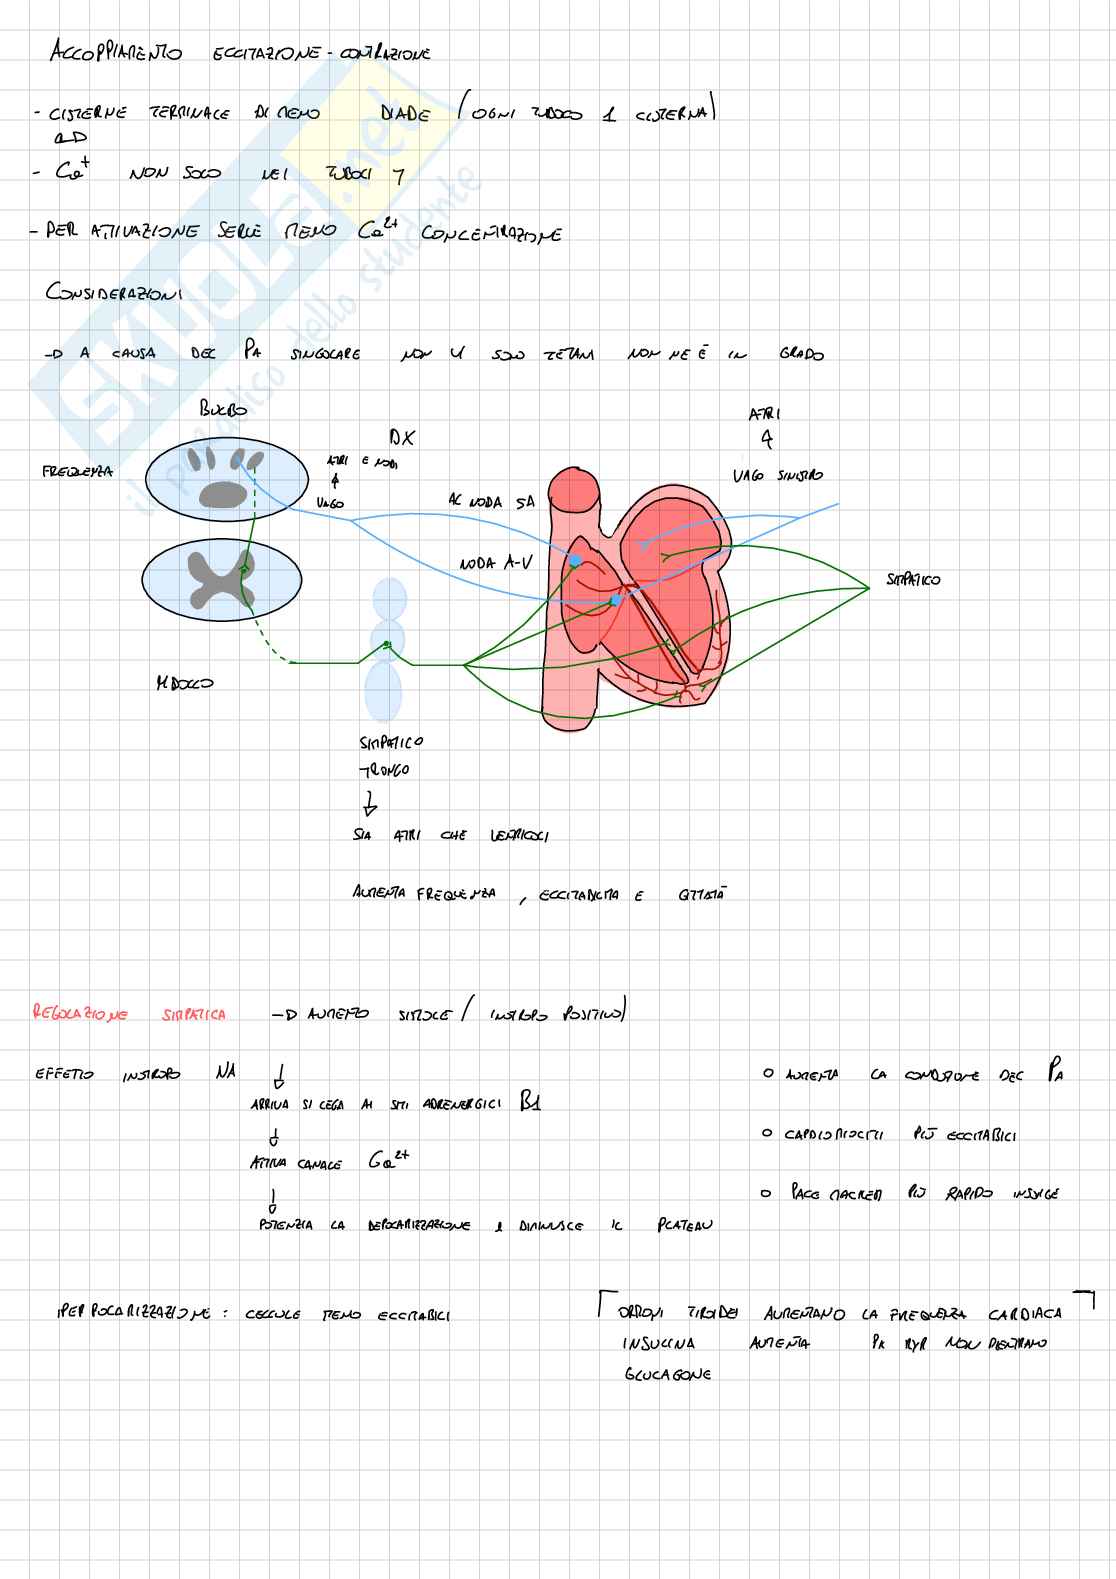 ACCOPPIAMENTO ECCITAZIONE - CONTRAZIONE
- CISTERNE TERMINALE DI MENO DIADE (OGNI TUBOLO 1 CISTERNA)
- Ca+ NON SOLO NEI TUBOLI T
- PER ATTIVAZIONE SERVE MENO Ca2+ CONCENTRAZIONE
CONSIDERAZIONI
→ A CAUSA DEL PA SINGOLARE NON VI SONO TETANI NON NE È IN GRADO
BULBO
FREQUENZA
DX
ATRI E NODI
↑
VAGO
AL NODA SA
NODA A-V
ATRI
↑
VAGO SINISTRO
SIMPATICO
MIDOLLO
SIMPATICO
TRONCO
↓
SIA ATRI CHE VENTRICOLI
AUMENTA FREQUENZA, ECCITABILITA E
REGOLAZIONE SIMPATICA → AUMENTO SISTOLE (INOTROPO POSITIVO)
EFFETTO INOTROPO NA ↓
ARRIVA SI LEGA AI SITI ADRENERGICI B1
↓
ATTIVA CANALE Ca2+
↓
POTENZIA LA DEPOLARIZZAZIONE E DIMINUISCE IL PLATEAU
o AUMENTA LA CONDUZIONE DEL PA
o CARDIOMIOCITI PIÙ ECCITABILI
o PACE MACKER PIÙ RAPIDO INSORGE
IPERPOLARIZZAZIONE : CELLULE MENO ECCITABILI
ORMONI TIROIDEI AUMENTANO LA FREQUENZA CARDIACA
INSULINA AUMENTA PK RYR NON
GLUCAGONE
SKUOLA.net
il paradiso dello studente